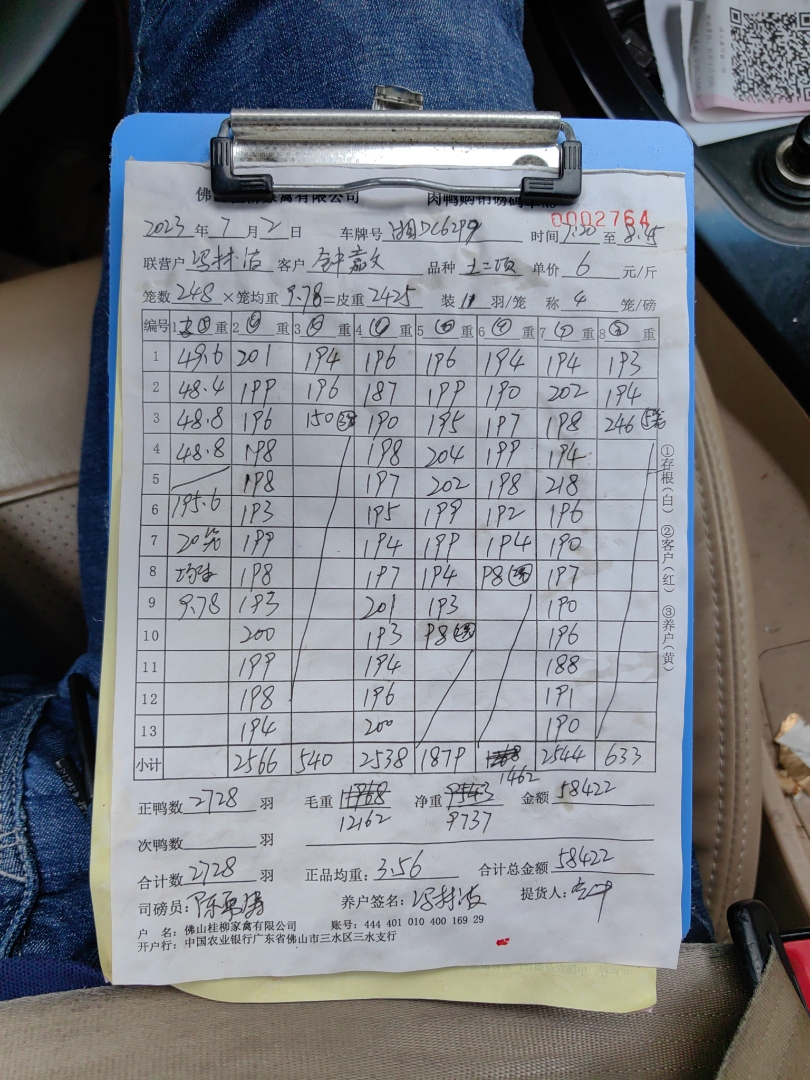 有限公司
0002764
2023年7月2日 车牌号 时间 至
联营户 客户 钟嘉文 品种 土二项 单价 6 元/斤
笼数 248 ×笼均重 9.78 =皮重 2425 装 11 羽/笼 称 4 笼/磅
编号 1 重 2 重 3 重 4 重 5 重 6 重 7 重 8 重
1 49.6 201 194 196 196 194 194 193
2 48.4 199 196 187 199 190 202 194
3 48.8 196 150 190 195 197 198 246
4 48.8 198 198 204 199 194
5 198 197 202 198 218
6 195.6 193 195 199 192 196
7 20笼 199 194 199 194 190
8 均重 198 197 194 98 197
9 9.78 193 201 193 190
10 200 193 98 196
11 199 194 188
12 198 196 191
13 194 200 190
小计 2566 540 2538 1879 1462 2544 633
正鸭数 2728 羽 毛重 12162 净重 9737 金额 58422
次鸭数 羽
合计数 2728 羽 正品均重: 3.56 合计总金额 58422
司磅员: 养户签名: 提货人:
户 名: 佛山桂柳家禽有限公司 账号: 444 401 010 400 169 29
开户行: 中国农业银行广东省佛山市三水区三水支行
①存根(白) ②客户(红) ③养户(黄)